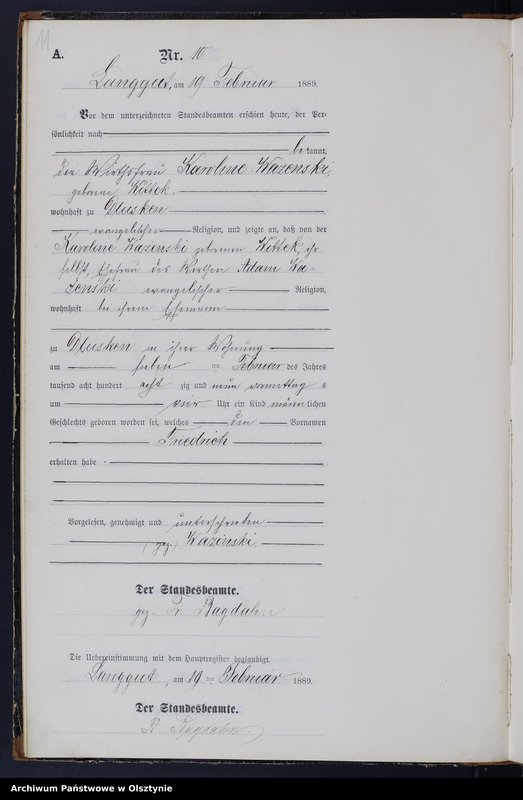 11
A.
Nr. 10
Langgut, am 19 Februar 1889.
Vor dem unterzeichneten Standesbeamten erschien heute, der Per-
sönlichkeit nach
bekannt,
die Wirthsfrau Karoline Kazenski
geborene Kittek
wohnhaft zu Glusken
evangelischer Religion, und zeigte an, daß von der
Karoline Kazenski geborenen Kittek, ihr
selbst, Ehefrau des Wirthen Adam Ka-
zenski evangelischer Religion,
wohnhaft bei ihrem Ehemann
zu Glusken in ihrer Wohnung
am sieben ten Februar des Jahres
tausend acht hundert acht zig und neun vormittag s
um vier Uhr ein Kind männlichen
Geschlechts geboren worden sei, welches den Vornamen
Friedrich
erhalten habe.
Vorgelesen, genehmigt und unterschrieben
(gez.) Kazinski
Der Standesbeamte.
gez. Fr. Ragdahn
Die Uebereinstimmung mit dem Hauptregister beglaubigt.
Langgut, am 19 ten Februar 1889.
Der Standesbeamte.
Ragdahn
Archiwum Państwowe w Olsztynie